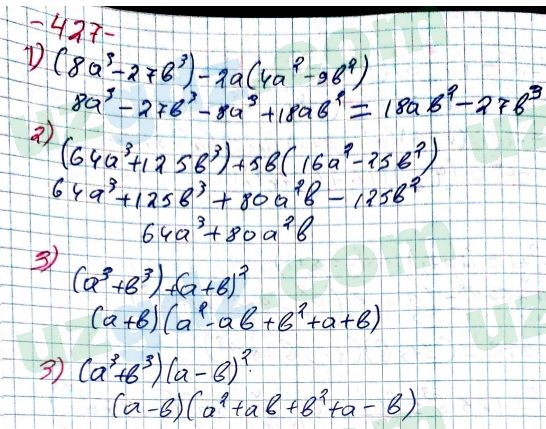 -427-
1) (8a³-27b³)-2a(4a²-9b²)
8a³-27b³-8a³+18ab²=18ab²-27b³
2) (64a³+125b³)+5b(16a²-25b²)
64a³+125b³+80a²b-125b²
64a³+80a²b
3) (a³+b³)+(a+b)²
(a+b)(a²-ab+b²+a+b)
3) (a³+b³)(a-b)²
(a-b)(a²+ab+b²+a-b)